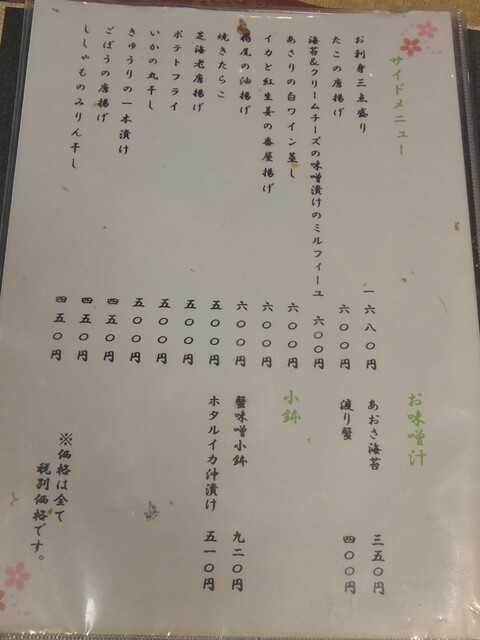 サイドメニュー
お刺身三点盛り 一六八〇円
たこの唐揚げ 六〇〇円
海苔&クリームチーズの味噌漬けのミルフィーユ 六〇〇円
あさりの白ワイン蒸し 六〇〇円
イカと紅生姜の番屋揚げ 六〇〇円
栃尾の油揚げ 六〇〇円
焼きたらこ 五〇〇円
芝海老唐揚げ 五〇〇円
ポテトフライ 五〇〇円
いかの丸干し 五〇〇円
きゅうりの一本漬け 四五〇円
ごぼうの唐揚げ 四五〇円
ししゃものみりん干し 四五〇円
お味噌汁
あおさ海苔 三五〇円
渡り蟹 四〇〇円
小鉢
蟹味噌小鉢 九二〇円
ホタルイカ沖漬け 五一〇円
※価格は全て
税別価格です。